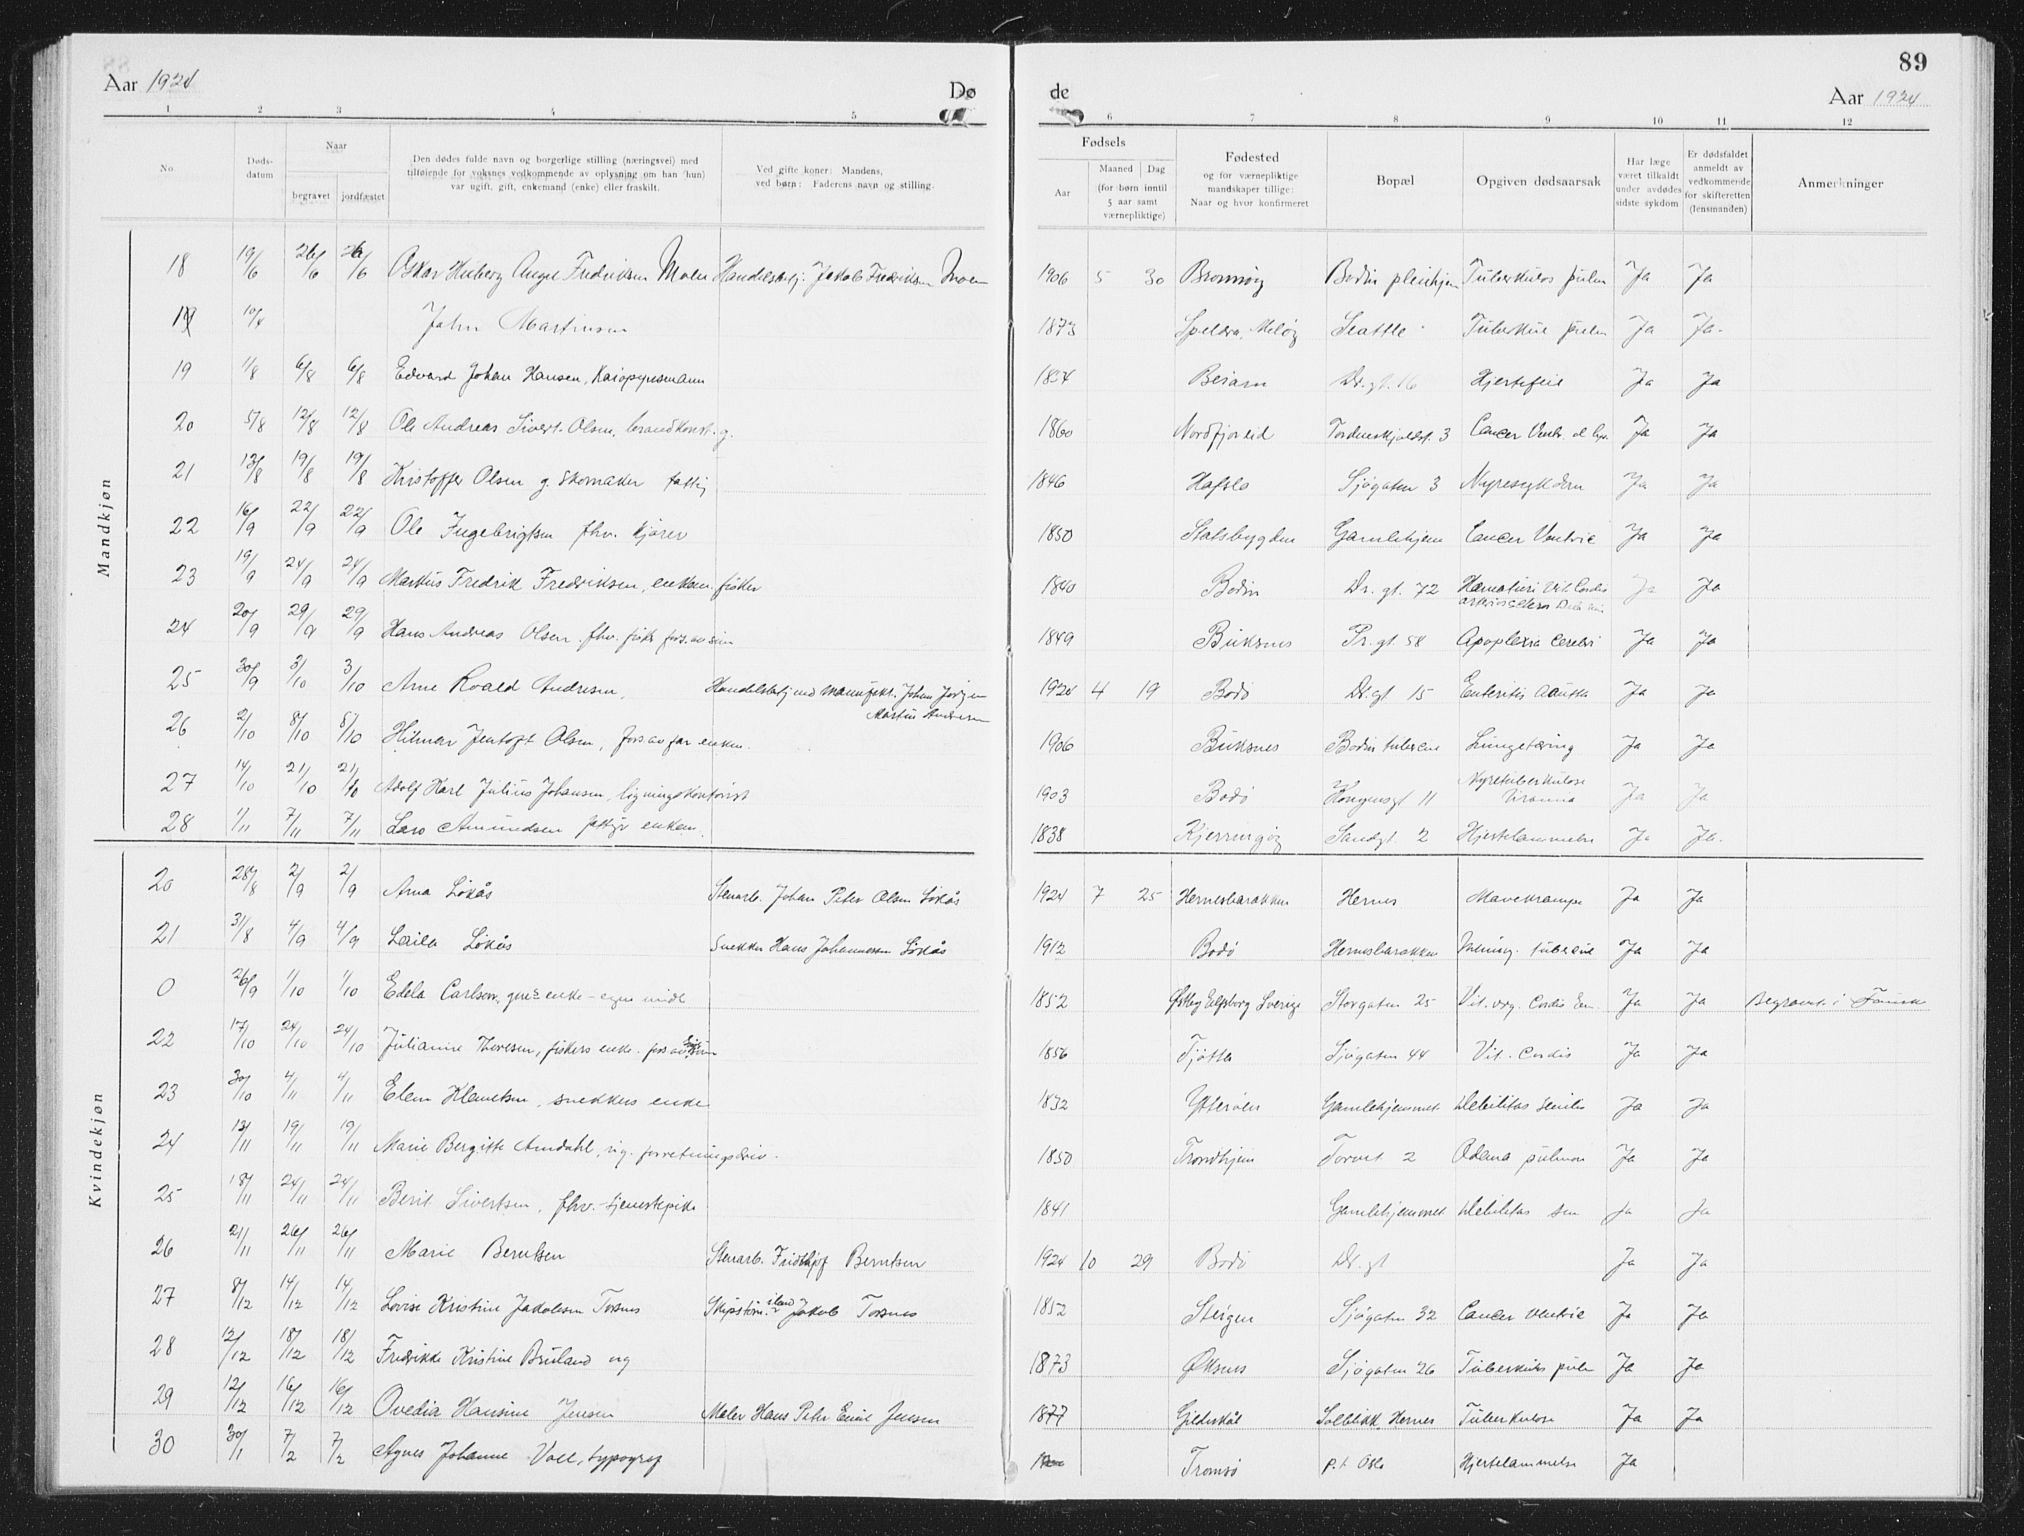 89
Aar 1924 Dø de Aar 1924
1 2 3 4 5 6 7 8 9 10 11 12
No. Døds-datum Naar begravet jordfæstet
Den dødes fulde navn og borgerlige stilling (næringsvei) med
tilføiende for voksnes vedkommende av oplysning om han (hun)
var ugift, gift, enkemand (enke) eller fraskilt.
Ved gifte koner: Mandens,
ved børn: Faderens navn og stilling.
Fødsels Aar Maaned Dag (for børn inntil 5 aar samt værnepliktige)
Fødested
og for værnepliktige
mandskaper tillige:
Naar og hvor konfirmeret
Bopæl
Opgiven dødsaarsak
Har læge været tilkaldt under avdødes sidste sykdom
Er dødsfaldet anmeldt av vedkommende for skifteretten (lensmanden)
Anmerkninger
Mandkjøn
18 19/6 26/6 26/6 Oskar Hiberg Angel Fredriksen Moen Handelsbetj. Jakob Fredriksen Moen 1906 5 30 Brønnøy Bodin pleiehjem Tuberkulos pulm Ja Ja
10/4 John Martinsen 1873 Speldra, Meløy Seattle Tuberkul pulm Ja Ja
19 1/8 6/8 6/8 Edvard Johan Hansen, Kaiopsynsmann 1854 Beiarn Dr. gt. 16 Hjertefeil Ja Ja
20 5/8 12/8 12/8 Ole Andreas Sivert Olsen, brandkonst. g. 1860 Nordfjordeid Tordenskjoldst. 3 Cancer Ventr. Ja Ja
21 13/8 19/8 19/8 Kristoffer Olsen g. skomaker fattig 1846 Hafslo Sjøgaten 3 Nyresykdom Ja Ja
22 16/9 22/9 22/9 Ole Ingebrigtsen fhv. kjører 1850 Statsbygden Gamlehjem Cancer Ventric Ja Ja
23 19/9 24/9 24/9 Markus Fredrik Fredriksen, enkem. fisker 1840 Bodin Dr. gt. 72 Hæmaturi Vit. Cordis Ja Ja
24 20/9 29/9 29/9 Hans Andreas Olsen fhv. fisk fors. av sin 1849 Buksnes Pr. gt. 58 Apoplexia Cerebri Ja Ja
25 30/9 3/10 3/10 Arne Roald Andresen, Handelsbetj. ved manufakt. Johan Jørgen
Martin Andresen 1924 4 19 Bodø Dr. gt 15 Enteritis acuta Ja Ja
26 2/10 8/10 8/10 Hilmar Jentoft Olsen, fors av far enkem. 1906 Buksnes Bodin tuberkul Lungetæring Ja Ja
27 14/10 21/10 21/10 Adolf Karl Julius Johansen, ligningskontorist 1903 Bodø Kongensgt 11 Nyretuberkulose Ja Ja
28 1/11 7/11 7/11 Lars Amundsen fattig enkem. 1838 Kjerringøy Sandgt. 2 Hjertelammelse Ja Ja
Kvindekjøn
20 28/8 2/9 2/9 Arna Løkås Stenarb. Johan Peter Olsen Løkås 1924 7 25 Hernesbarakken Hernes Mavekrampe Ja Ja
21 31/8 4/9 4/9 Laila Løkås Snekker Hans Johannessen Løkås 1912 Bodø Hernesbarakken Mening. tubercul Ja Ja
0 26/9 1/10 1/10 Edela Carlson, enke - egne midl 1852 Elfsborg Sverige Storgaten 25 Vit. org. Cordis Ja Ja Begravet i Fauske
22 17/10 24/10 24/10 Julianne Thoresen, fiskers enke. 1856 Tjøtta Sjøgaten 44 Vit. Cordis Ja Ja
23 30/10 4/11 4/11 Elen Klemetsen, snekkers enke 1832 Ytterøen Gamlehjemmet Debilitas senilis Ja Ja
24 13/11 19/11 19/11 Marie Bergitte Amdahl, ug. forretningsdriv. 1850 Trondhjem Torvet 2 Ødema pulmon Ja Ja
25 18/11 24/11 24/11 Berit Sivertsen, fhv. tjenestepike 1841 Gamlehjemmet Debilitas sen Ja Ja
26 21/11 26/11 26/11 Marie Berntsen Stenarb. Fridthjof Berntsen 1924 10 29 Bodø Dr. gt Ja Ja
27 8/12 14/12 14/12 Lovise Kristine Jakobsen Torsnes Jakob Torsnes 1852 Steigen Sjøgaten 32 Cancer ventric Ja Ja
28 12/12 18/12 18/12 Fredrikke Kristine Bruland ug 1873 Øksnes Sjøgaten 26 Tuberkulos pulm Ja Ja
29 12/12 16/12 16/12 Ovedia Hansine Jensen Maler Hans Peter Emil Jensen 1877 Gildeskål Solblikk, Hernes Tuberkulose Ja Ja
30 30/1 7/2 7/2 Agnes Johanne Voll, typograf Tromsø p.t. Oslo Hjertelammelse Ja